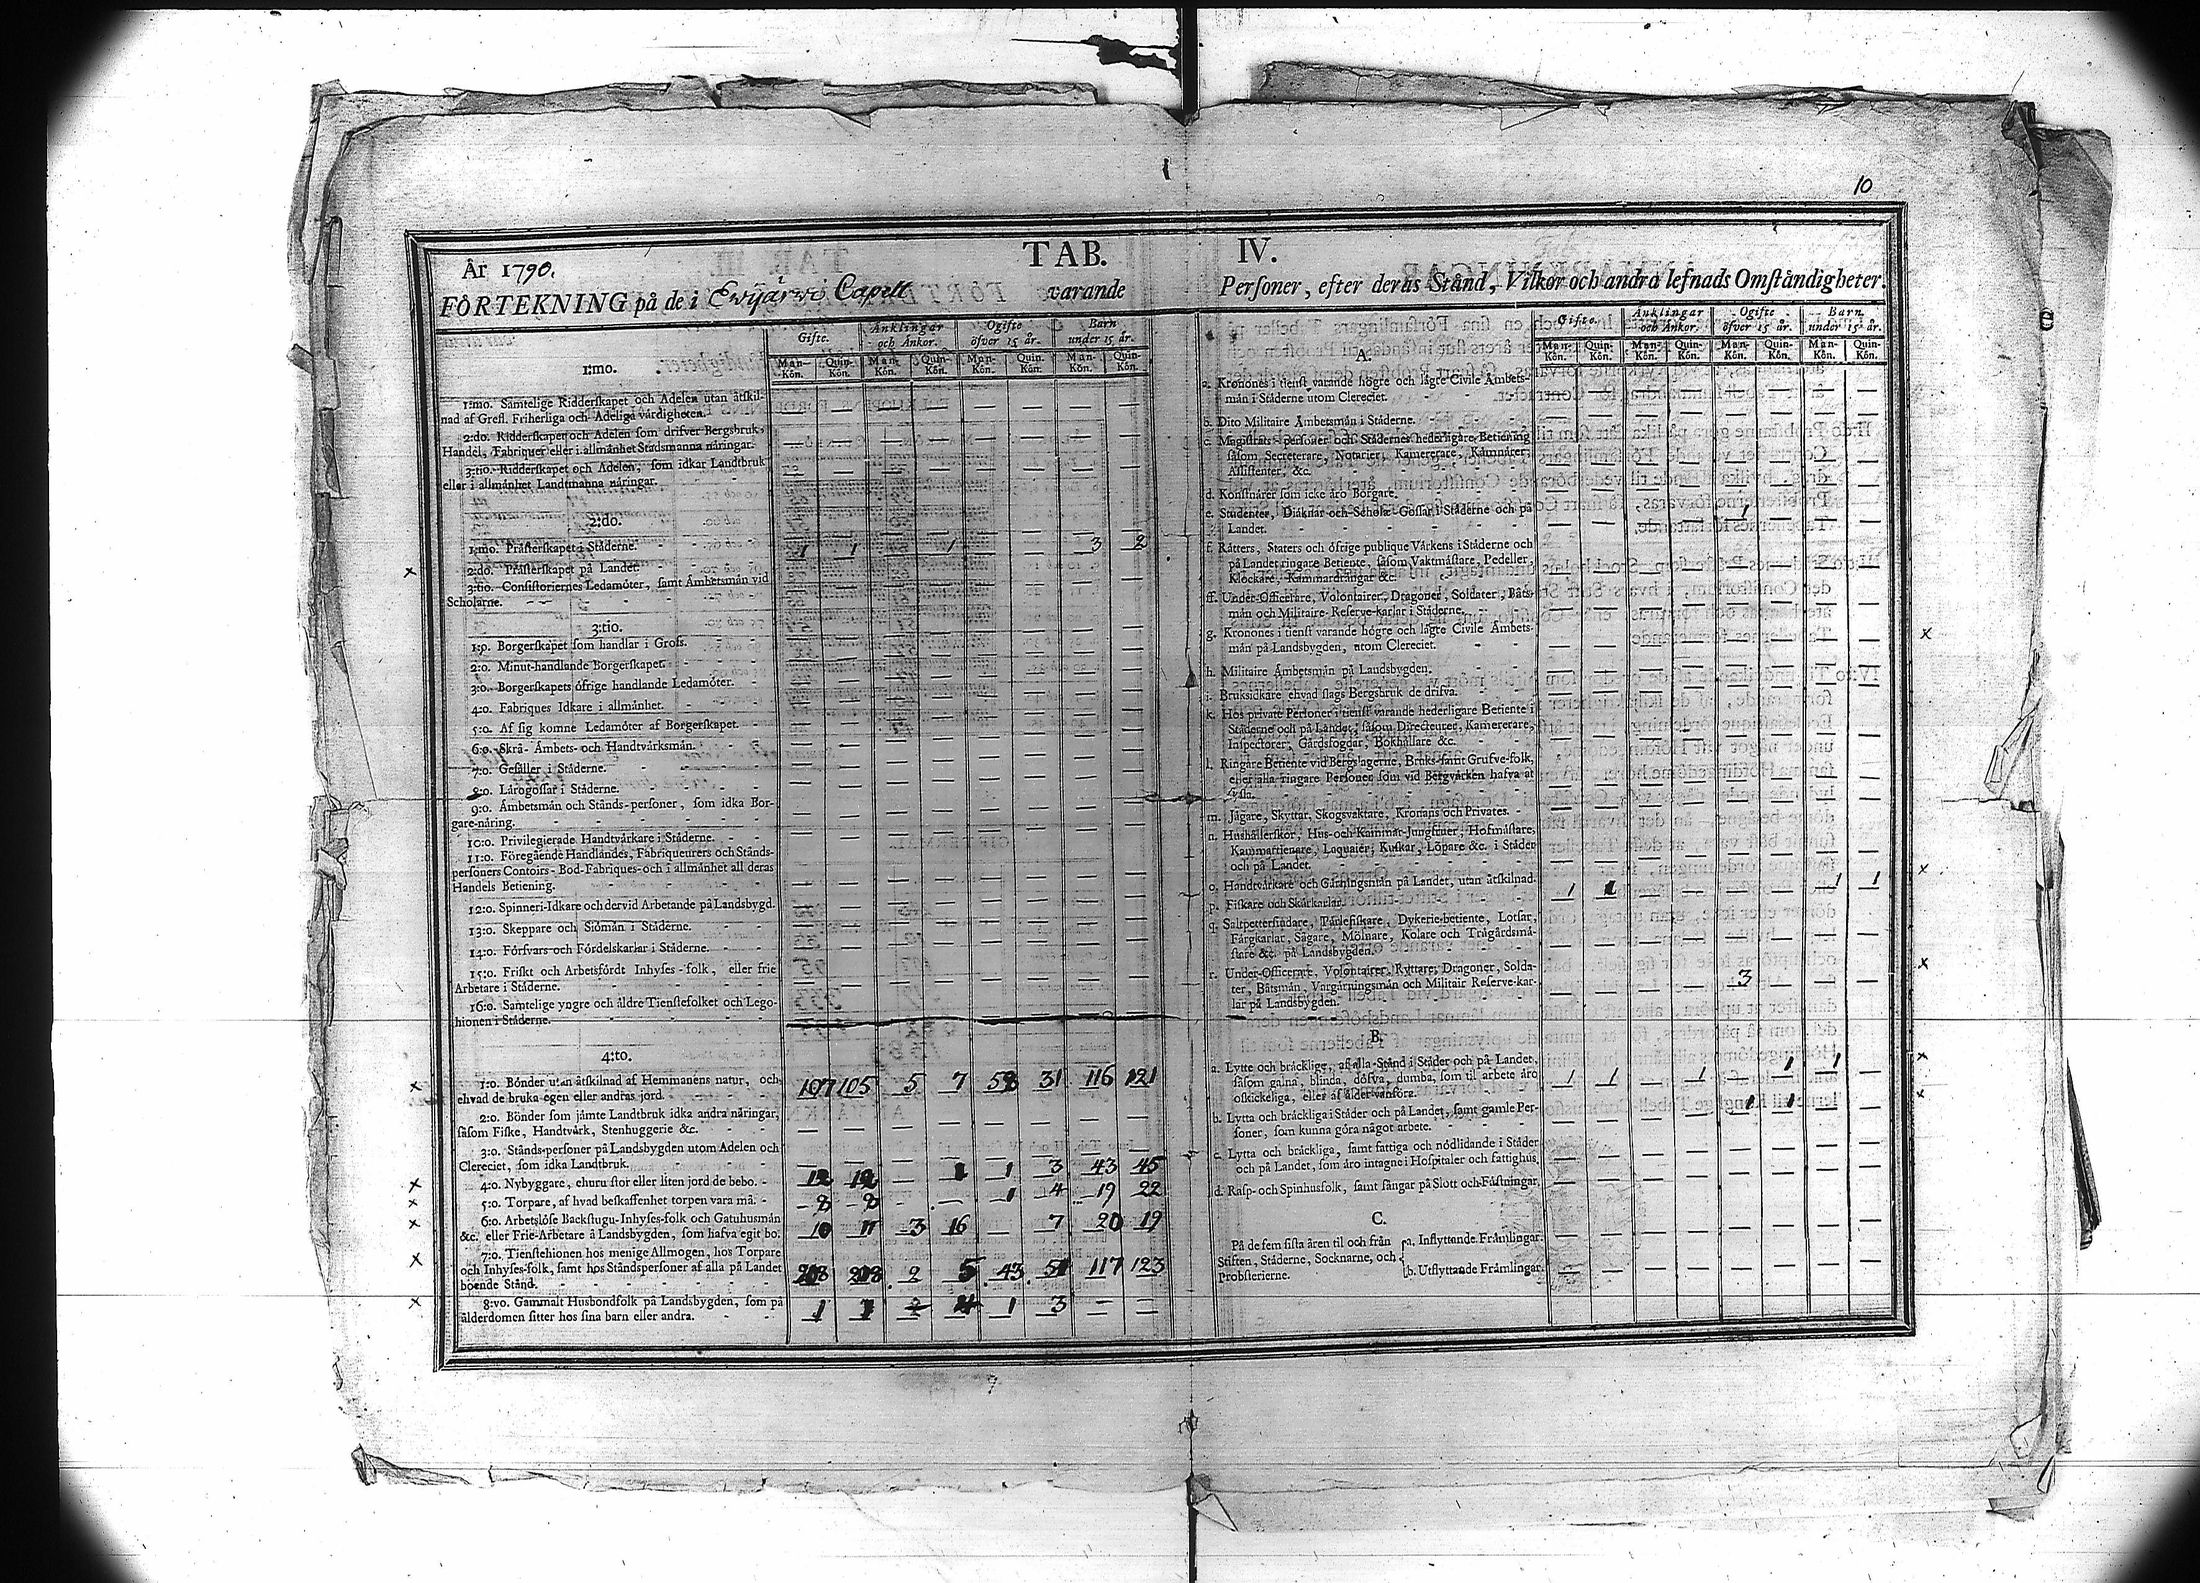 10
År 1790.
TAB. IV.
FÖRTEKNING på de i Ewijärwi Capell varande Personer, efter deras Stånd, Vilkor och andra lefnads Omständigheter.
Gifte. Änklingar och Änkor. Ogifte öfver 15 år. Barn under 15 år.
Man-Kön. Quin-Kön. Man-Kön. Quin-Kön. Man-Kön. Quin-Kön. Man-Kön. Quin-Kön.
1:mo.
1:mo. Samtelige Ridderskapet och Adelen utan åtskil-
nad af Grefl. Friherliga och Adeliga värdigheten. — — — — — — — —
2:do. Ridderskapet och Adelen som drifver Bergsbruk,
Handel, Fabriquer eller i allmänhet Stadsmanna näringar. — — — — — — — —
3:tio. Ridderskapet och Adelen, som idkar Landtbruk
eller i allmänhet Landtmanna näringar. — — — — — — — —
2:do.
1:mo. Prästerskapet i Städerne.
2:do. Prästerskapet på Landet 1 1 — 1 — — 3 2
3:tio. Consistoriernes Ledamöter, samt Ämbetsmän vid
Scholarne. — — — — — — — —
3:tio.
1:o. Borgerskapet som handlar i Gross. — — — — — — — —
2:o. Minut-handlande Borgerskapet. — — — — — — — —
3:o. Borgerskapets öfrige handlande Ledamöter. — — — — — — — —
4:o. Fabriques Idkare i allmänhet. — — — — — — — —
5:o. Af sig komne Ledamöter af Borgerskapet. — — — — — — — —
6:o. Skrå- Ämbets- och Handtvärksmän. — — — — — — — —
7:o. Gesäller i Städerne. — — — — — — — —
8:o. Lärogossar i Städerne. — — — — — — — —
9:o. Ämbetsmän och Stånds-personer, som idka Bor-
gare-näring. — — — — — — — —
10:o. Privilegierade Handtvärkare i Städerne. — — — — — — — —
11:o. Föregående Handlandes, Fabriqueurers och Stånds-
personers Contoirs- Bod-Fabriques- och i allmänhet all deras
Handels Betiening. — — — — — — — —
12:o. Spinneri-Idkare och dervid Arbetande på Landsbygd. — — — — — — — —
13:o. Skeppare och Siömän i Städerne. — — — — — — — —
14:o. Försvars- och Fördelskarlar i Städerne. — — — — — — — —
15:o. Friskt och Arbetsfördt Inhyses-folk, eller frie
Arbetare i Städerne. — — — — — — — —
16:o. Samtelige yngre och äldre Tienstefolket och Lego-
hionen i Städerne.
4:to.
1:o. Bönder utan åtskilnad af Hemmanens natur, och
ehvad de bruka egen eller andras jord. 107 105 5 7 58 31 116 121
2:o. Bönder som jämte Landtbruk idka andra näringar,
såsom Fiske, Handtvärk, Stenhuggerie &c. — — — — — — — —
3:o. Stånds-personer på Landsbygden utom Adelen och
Clereciet, som idka Landtbruk. — — — — — — — —
4:o. Nybyggare, ehuru stor eller liten jord de bebo. 12 12 — 1 1 3 43 45
5:o. Torpare, af hvad beskaffenhet torpen vara må. 8 8 — — 1 4 19 22
6:o. Arbetslöse Backstugu-Inhyses-folk och Gatuhusmän
&c. eller Frie-Arbetare å Landsbygden, som hafva egit bo. 10 11 3 16 — 7 20 19
7:o. Tienstehionen hos menige Allmogen, hos Torpare
och Inhyses-folk, samt hos Ståndspersoner af alla på Landet
boende Stånd. 2 5 43 117 123
8:vo. Gammalt Husbondfolk på Landsbygden, som på
ålderdomen sitter hos sina barn eller andra. 1 1 2 4 1 3 — —
Gifte. Änklingar och Änkor. Ogifte öfver 15 år. Barn under 15 år.
Man-Kön. Quin-Kön. Man-Kön. Quin-Kön. Man-Kön. Quin-Kön. Man-Kön. Quin-Kön.
A.
a. Kronones i tienst varande högre och lägre Civile Ämbets-
män i Städerne utom Clereciet. — — — — — — — —
b. Dito Militaire Ämbetsmän i Städerne. — — — — — — — —
c. Magistrats-personer och Städernes hederligare Betiening
såsom Secreterare, Notarier, Kamererare, Kämnärer,
Assistenter, &c. — — — — — — — —
d. Konstnärer som icke äro Borgare. — — — — — — — —
e. Studenter, Diäknar och Scholæ-Gossar i Städerne och på
Landet. — — — — 1 — — —
f. Rätters, Staters och öfrige publique Värkens i Städerne och
på Landet ringare Betiente, såsom Vaktmästare, Pedeller,
Klockare, Kammardrängar &c. — — — — — — — —
ff. Under-Officerare, Volontairer, Dragoner, Soldater, Båts-
män och Militaire-Reserve-karlar i Städerne. — — — — — — — —
g. Kronones i tienst varande högre och lägre Civile Ämbets-
män på Landsbygden, utom Clereciet. — — — — — — — —
h. Militaire Ämbetsmän på Landsbygden. — — — — — — — —
i. Bruksidkare ehvad slags Bergsbruk de drifva. — — — — — — — —
k. Hos private Personer i tienst varande hederligare Betiente i
Städerne och på Landet, såsom Directeurer, Kamererare,
Inspectorer, Gårdsfogdar, Bokhållare &c. — — — — — — — —
l. Ringare Betiente vid Bergslagerne, Bruks- samt Grufve-folk,
eller alla ringare Personer som vid Bergvärken hafva at
sysla. — — — — — — — —
m. Jägare, Skyttar, Skogsvaktare, Kronans och Privates. — — — — — — — —
n. Hushållerskor, Hus- och Kammar-Jungfruer, Hofmästare,
Kammartienare, Laquaier, Kuskar, Löpare &c. i Städer
och på Landet. — — — — — — — —
o. Handtvärkare och Gärningsmän på Landet, utan åtskilnad. 1 1 — — — — 1 1
p. Fiskare och Skärkarlar. — — — — — — — —
q. Saltpettersiudare, Pärlefiskare, Dykerie-betiente, Lotsar,
Färgkarlar, Sågare, Mölnare, Kolare och Trägårdsmä-
stare &c. på Landsbygden. — — — — — — — —
r. Under-Officerare, Volontairer, Ryttare, Dragoner, Solda-
ter, Båtsmän, Vargärningsmän och Militair Reserve-kar-
lar på Landsbygden. — — — — 3 — — —
B.
a. Lytte och bräcklige, af alla Stånd i Städer och på Landet,
såsom galna, blinda, döfva, dumba, som til arbete äro
oskickeliga, eller af ålder vanföra. 1 1 — 1 — 1 1 —
b. Lytta och bräckliga i Städer och på Landet, samt gamle Per-
soner, som kunna göra något arbete. — — — — 1 1 — —
c. Lytta och bräckliga, samt fattiga och nödlidande i Städer
och på Landet, som äro intagne i Hospitaler och fattighus. — — — — — — — —
d. Rasp- och Spinhusfolk, samt fångar på Slott och Fästningar. — — — — — — — —
C.
På de fem sista åren til och från
Stiften, Städerne, Socknarne, och
Probsterierne.
a. Inflyttande Främlingar. — — — — — — — —
b. Utflyttande Främlingar. — — — — — — — —